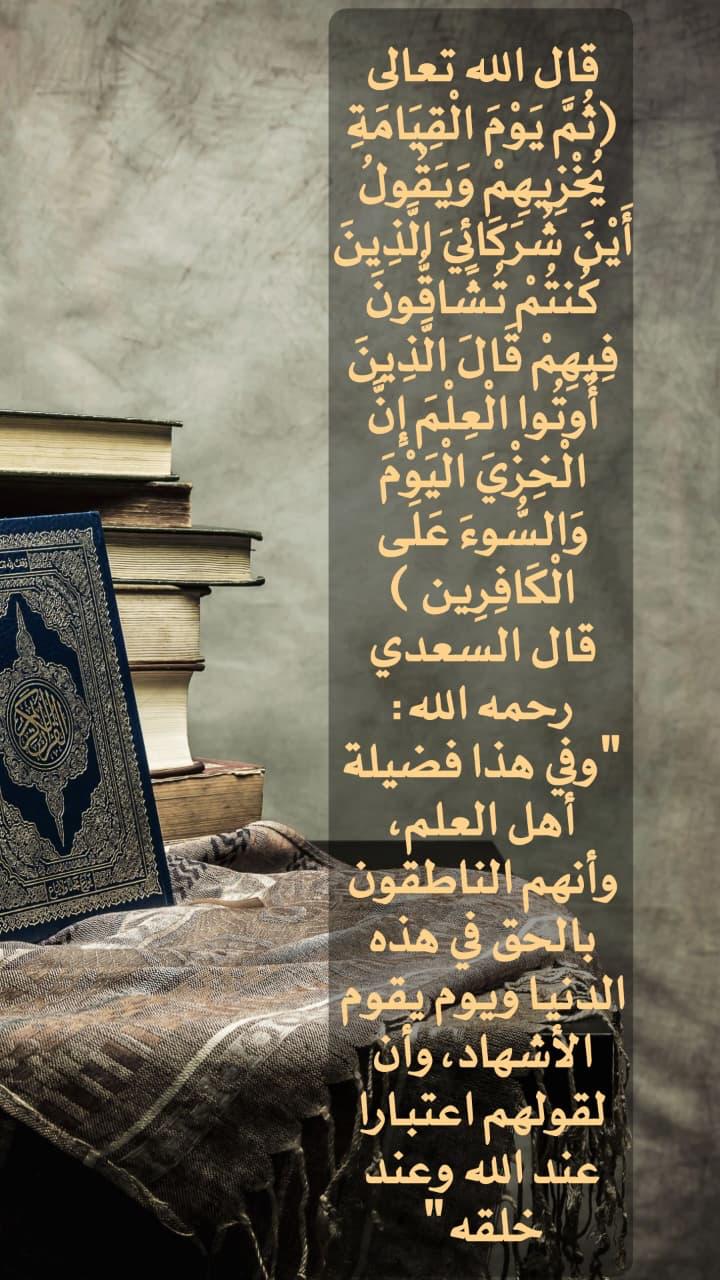 قال الله تعالى
(ثُمَّ يَوْمَ الْقِيَامَةِ
يُخْزِيهِمْ وَيَقُولُ
أَيْنَ شُرَكَائِيَ الَّذِينَ
كُنتُمْ تُشَاقُّونَ
فِيهِمْ قَالَ الَّذِينَ
أُوتُوا الْعِلْمَ إِنَّ
الْخِزْيَ الْيَوْمَ
وَالسُّوءَ عَلَى
الْكَافِرِين )
قال السعدي
رحمه الله:
"وفي هذا فضيلة
أهل العلم،
وأنهم الناطقون
بالحق في هذه
الدنيا ويوم يقوم
الأشهاد، وأن
لقولهم اعتبارا
عند الله وعند
خلقه"
القرآن الكريم